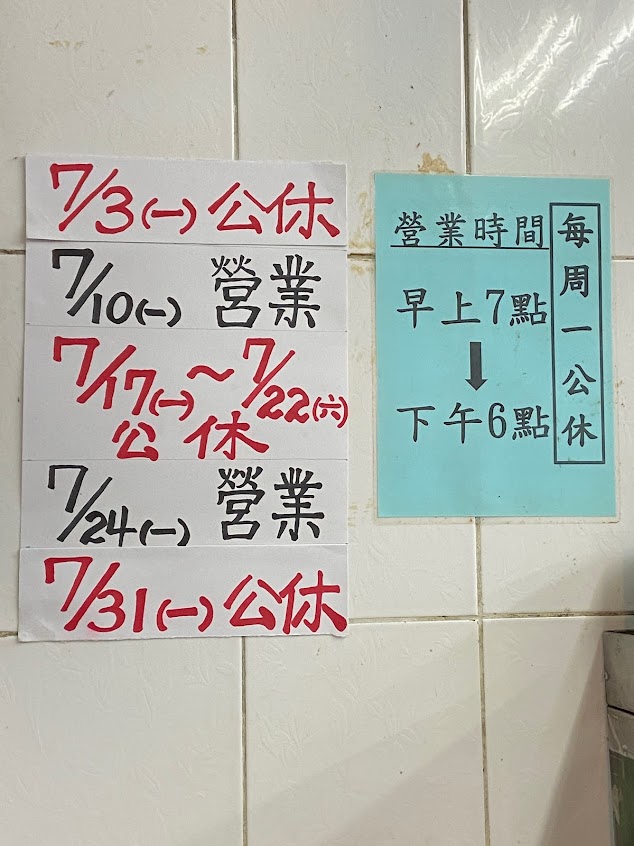 7/3(一)公休
7/10(一) 營業
7/17(一)～7/22(六)
公休
7/24(一) 營業
7/31(一)公休
營業時間
早上7點
下午6點
每周一公休